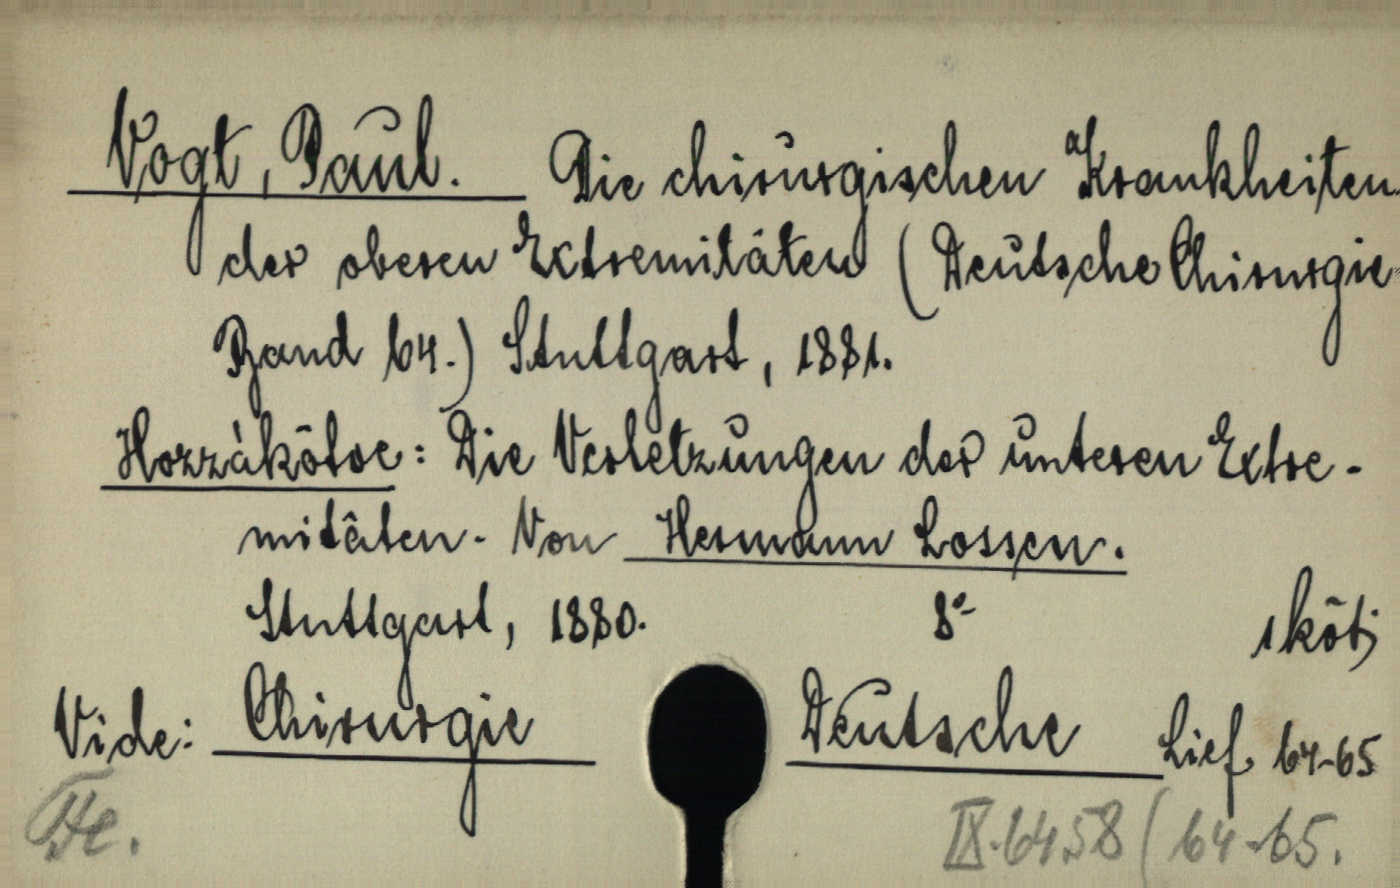 Vogt, Paul. Die chirurgischen Krankheiten
der oberen Extremitäten (Deutsche Chirurgie
Band 64.) Stuttgart, 1881.
Hozzákötve: Die Verletzungen der unteren Extre-
mitäten. Von Hermann Lossen.
Stuttgart, 1880. 8°
1 köt;
Vide: Chirurgie Deutsche Lief. 64-65
IX.6458 (64-65.